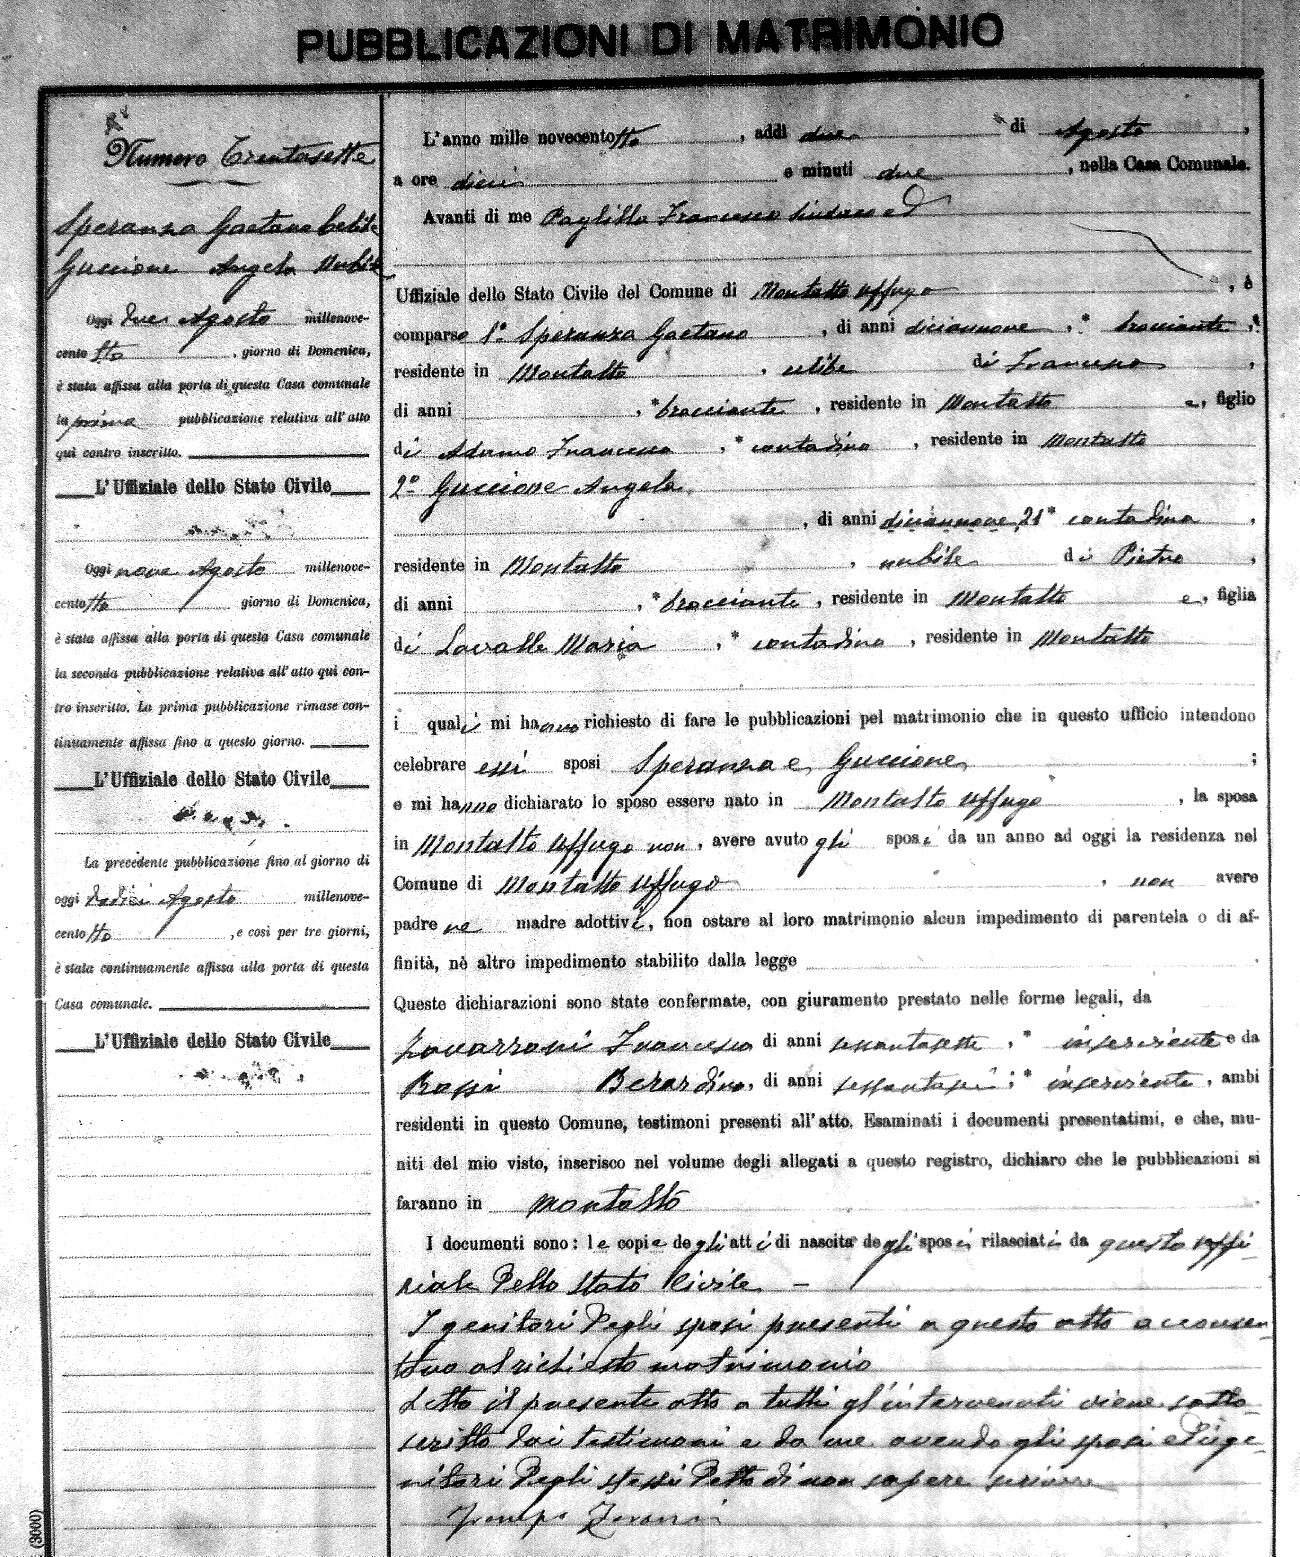 PUBBLICAZIONI DI MATRIMONIO
Numero Trentasette
Speranza Gaetano Celibe
Guccione Angela Nubile
Oggi due Agosto millenove-
cento tto, giorno di Domenica,
è stata affissa alla porta di questa Casa comunale
la prima pubblicazione relativa all'atto
quì contro inscritto.
L'Uffiziale dello Stato Civile
Oggi nove Agosto millenove-
cento tto giorno di Domenica,
è stata affissa alla porta di questa Casa comunale
la seconda pubblicazione relativa all'atto quì con-
tro inscritto. La prima pubblicazione rimase con-
tinuamente affissa fino a questo giorno.
L'Uffiziale dello Stato Civile
La precedente pubblicazione fino al giorno di
oggi dodici Agosto millenove-
cento tto, e così per tre giorni,
è stata continuamente affissa alla porta di questa
Casa comunale.
L'Uffiziale dello Stato Civile
L'anno mille novecento tto, addì due di Agosto,
a ore dieci e minuti due, nella Casa Comunale.
Avanti di me Francesco Sindaco ed
Uffiziale dello Stato Civile del Comune di Montalto Uffugo, è
comparso 1° Speranza Gaetano, di anni diciannove, * bracciante,
residente in Montalto, celibe di Francesco,
di anni , * bracciante, residente in Montalto e, figlio
di Francesca, * contadina, residente in Montalto
2° Guccione Angela
, di anni diciannove, 21 * contadina,
residente in Montalto, nubile di Pietro,
di anni , * bracciante, residente in Montalto e, figlia
di Lavalle Maria, * contadina, residente in Montalto
i quali mi hanno richiesto di fare le pubblicazioni pel matrimonio che in questo ufficio intendono
celebrare essi sposi Speranza e Guccione;
e mi hanno dichiarato lo sposo essere nato in Montalto Uffugo, la sposa
in Montalto Uffugo non, avere avuto gli sposi da un anno ad oggi la residenza nel
Comune di Montalto Uffugo, non avere
padre ne madre adottivi, non ostare al loro matrimonio alcun impedimento di parentela o di af-
finità, nè altro impedimento stabilito dalla legge.
Queste dichiarazioni sono state confermate, con giuramento prestato nelle forme legali, da
Francesco di anni sessantasette, * inserviente e da
Rossi Berardino, di anni sessantasei; * inserviente, ambi
residenti in questo Comune, testimoni presenti all'atto. Esaminati i documenti presentatimi, e che, mu-
niti del mio visto, inserisco nel volume degli allegati a questo registro, dichiaro che le pubblicazioni si
faranno in Montalto
I documenti sono: le copie degli atti di nascita degli sposi rilasciati da questo Uffi-
ziale dello Stato Civile -
I genitori degli sposi presenti a questo atto acconsen-
tono al richiesto matrimonio
Letto il presente atto a tutti gl'intervenuti viene sotto-
scritto dai testimoni e da me avendo gli sposi e i ge-
nitori degli stessi detto di non sapere scrivere
(3000)